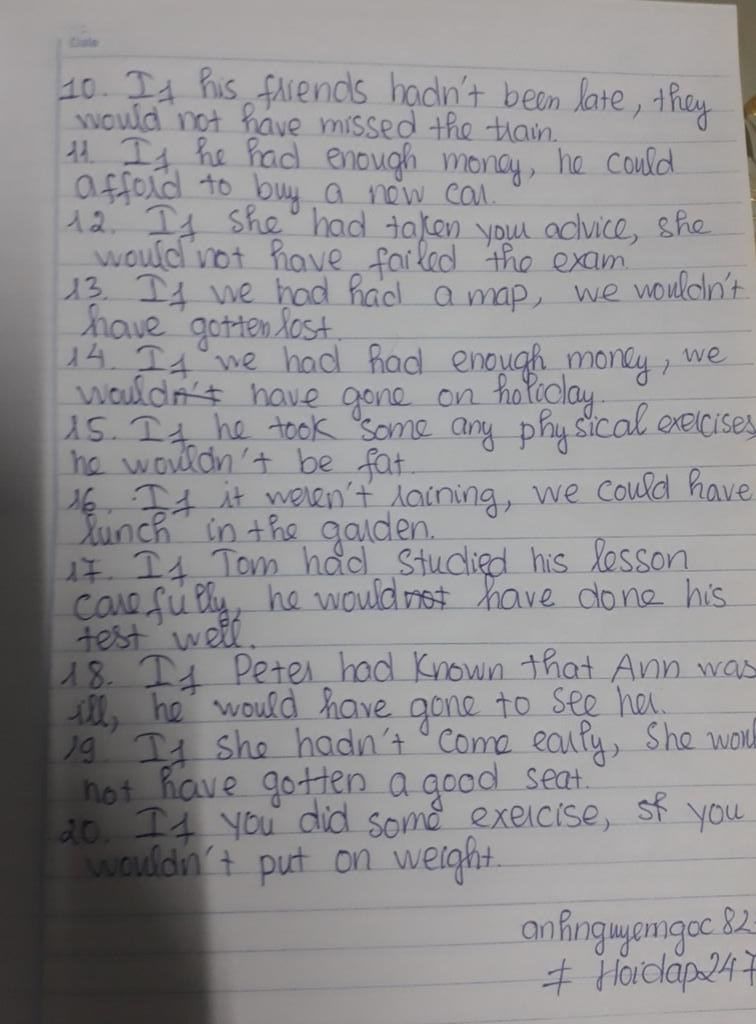 Date
10. If his friends hadn't been late, they
would not have missed the train.
11. If he had enough money, he could
afford to buy a new car.
12. If she had taken your advice, she
would not have failed the exam
13. If we had had a map, we wouldn't
have gotten lost.
14. If we had had enough money, we
wouldn't have gone on holiday.
15. If he took some any physical exercises
he wouldn't be fat.
16. If it weren't raining, we could have
lunch in the garden.
17. If Tom had studied his lesson
carefully, he would not have done his
test well.
18. If Peter had known that Ann was
ill, he would have gone to see her.
19 If she hadn't come early, she woul
not have gotten a good seat.
20. If you did some exercise, sf you
wouldn't put on weight.
anhnguyemgoc82
# Hoidap247